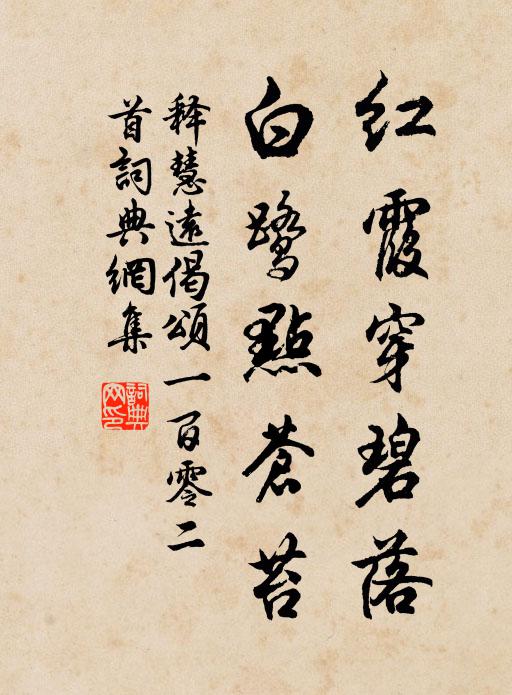 红霞穿碧落
白鹭點蒼苔
释慧遠偈頌一百零二
首詞典網集
詞典网印